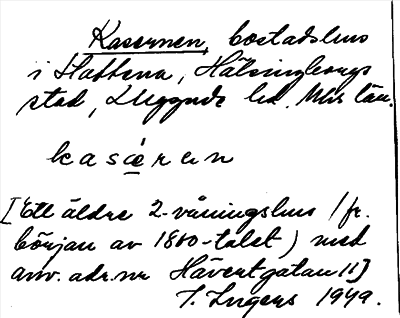 Kasernen, bostadshus
i Hästena, Hälsingborgs
stad, Luggude hd. Mlhs län.
kasæ̣rən
[Ett äldre 2-våningshus (fr.
början av 1800-talet) med
anv. adr.nr Hävertgatan 11]
J. Ingers 1949.